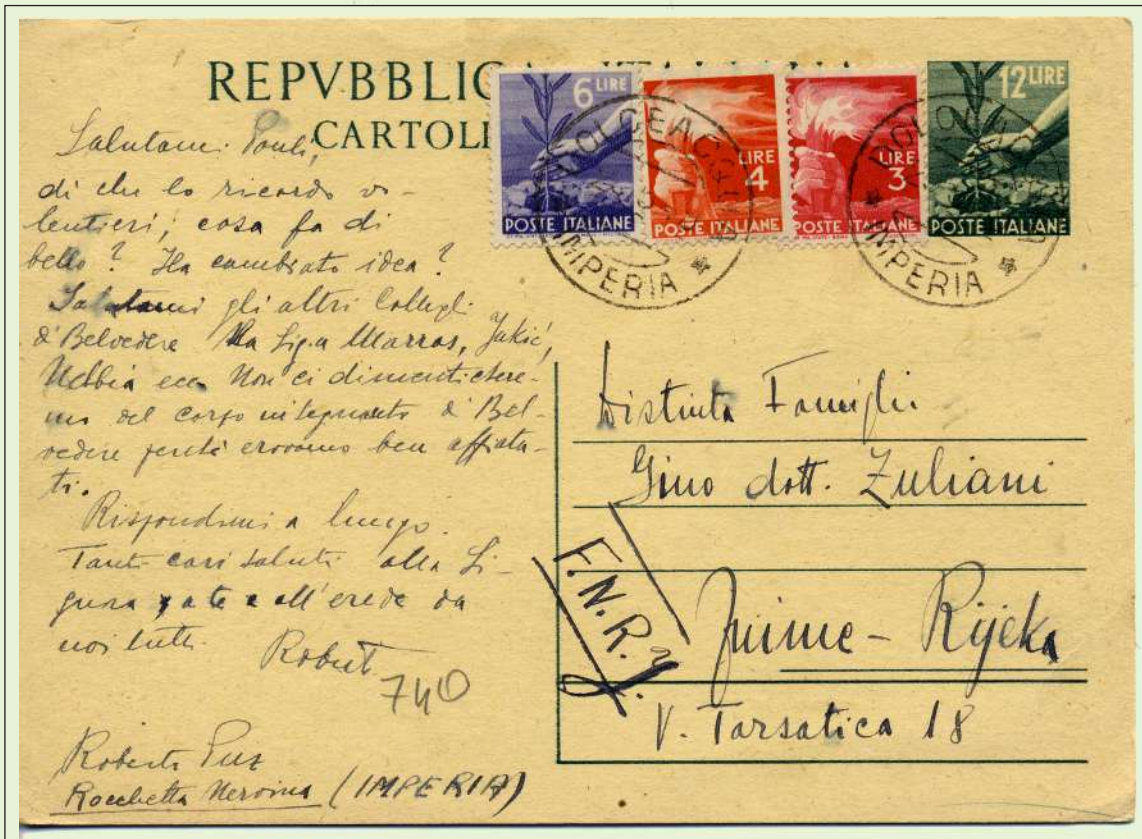 REPVBBLICA
CARTOLI
6 LIRE
POSTE ITALIANE
LIRE
4
POSTE ITALIANE
LIRE
3
POSTE ITALIANE
12 LIRE
POSTE ITALIANE
IMPERIA
IMPERIA
Salutami
di che lo ricordo vo-
lentieri, cosa fa di
bello? Ha cambiato idea?
Salutami gli altri Colleghi
di Belvedere la Sig.a Marras, Jakić,
Nebbia ecc. Non ci dimentichere-
mo del corpo insegnante di Bel-
vedere perché eravamo ben affiata-
ti.
Rispondimi a lungo.
Tanti cari saluti alla Si-
gnora a te e all'erede da
noi tutti.
Robert
740
Roberto
Rocchetta Nervina (IMPERIA)
Distinta Famiglia
Gino dott. Zuliani
F.N.R.J.
Fiume - Rijeka
V. Tarsatica 18